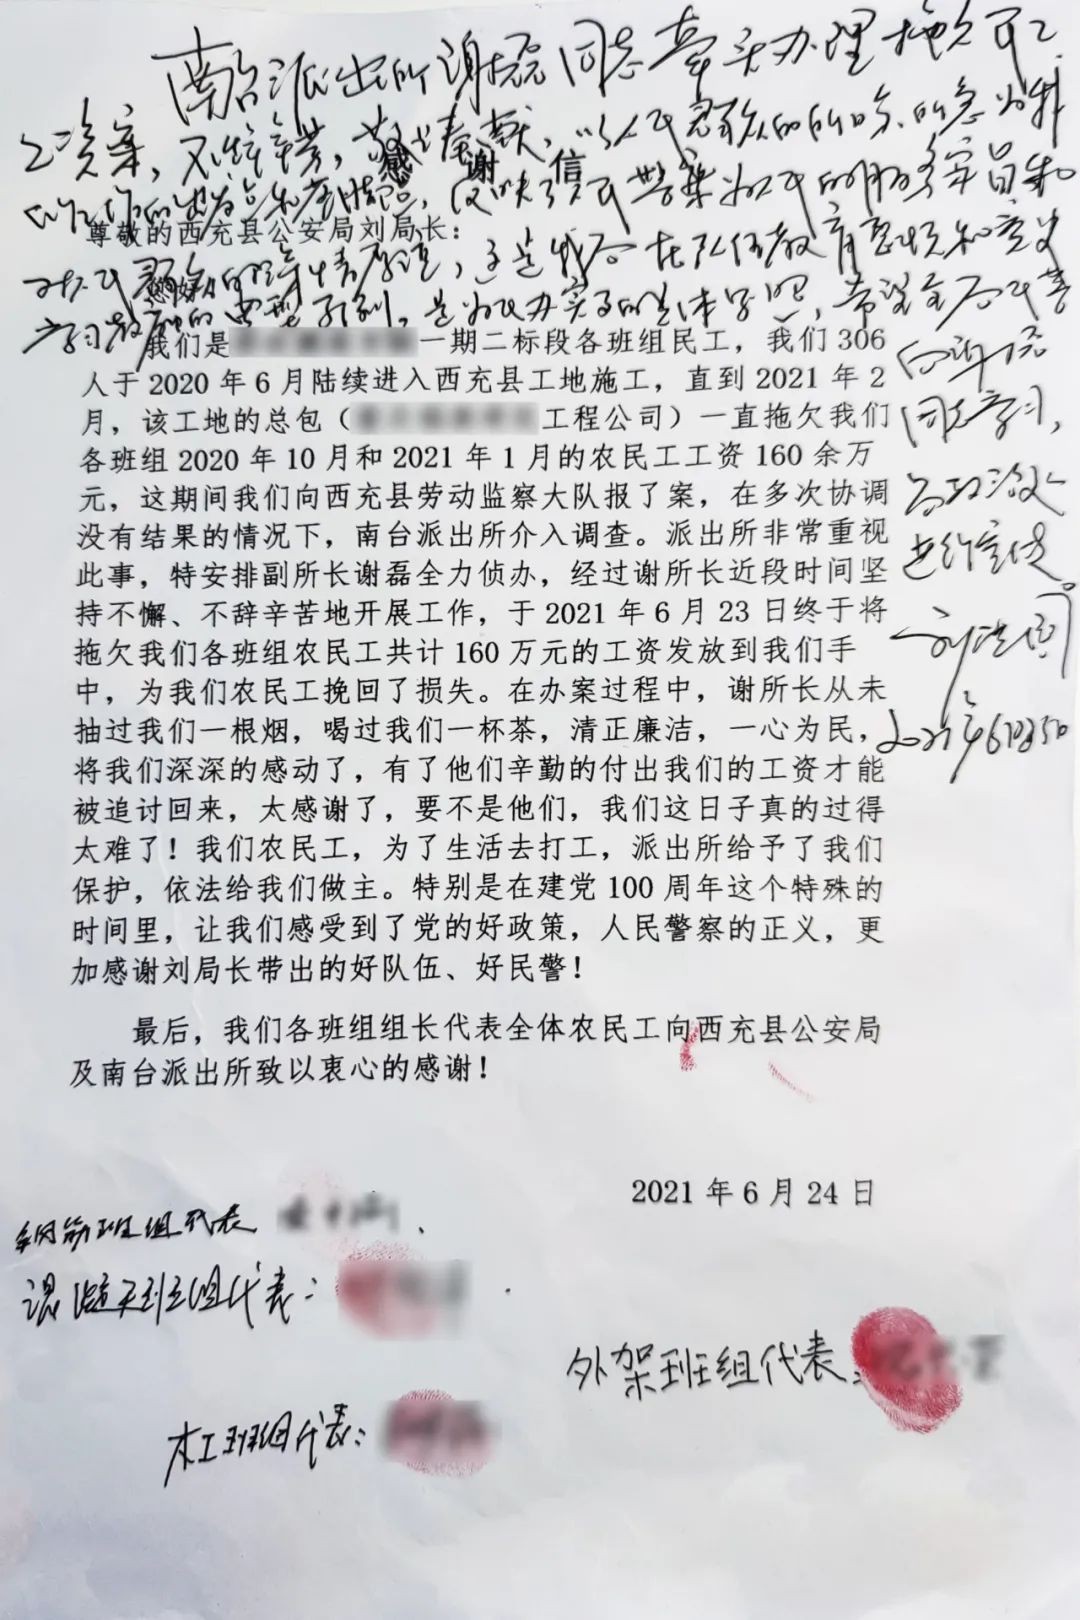 南台派出所谢磊同志牵头办理拖欠民工
工资案，不辞辛劳，敬业奉献，以人民群众的所盼、所急为
工作的出发点和落脚点，反映了人民警察为人民的服务宗旨和
对人民群众的深情厚谊，这是我局在队伍教育整顿和党史
学习教育的典型事例，是为民办实事的具体写照，希望全局民警
向谢磊
同志学习，
局政治处
进行宣传。
感谢信
尊敬的西充县公安局刘局长：
您好！
我们是一期二标段各班组民工，我们 306
人于 2020 年 6 月陆续进入西充县工地施工，直到 2021 年 2
月，该工地的总包（工程公司）一直拖欠我们
各班组 2020 年 10 月和 2021 年 1 月的农民工工资 160 余万
元，这期间我们向西充县劳动监察大队报了案，在多次协调
没有结果的情况下，南台派出所介入调查。派出所非常重视
此事，特安排副所长谢磊全力侦办，经过谢所长近段时间坚
持不懈、不辞辛苦地开展工作，于 2021 年 6 月 23 日终于将
拖欠我们各班组农民工共计 160 万元的工资发放到我们手
中，为我们农民工挽回了损失。在办案过程中，谢所长从未
抽过我们一根烟，喝过我们一杯茶，清正廉洁，一心为民，
将我们深深的感动了，有了他们辛勤的付出我们的工资才能
被追讨回来，太感谢了，要不是他们，我们这日子真的过得
太难了！我们农民工，为了生活去打工，派出所给予了我们
保护，依法给我们做主。特别是在建党 100 周年这个特殊的
时间里，让我们感受到了党的好政策，人民警察的正义，更
加感谢刘局长带出的好队伍、好民警！
最后，我们各班组组长代表全体农民工向西充县公安局
及南台派出所致以衷心的感谢！
2021 年 6 月 24 日
钢筋班组代表
混凝土班组代表：
外架班组代表：
木工班组代表：